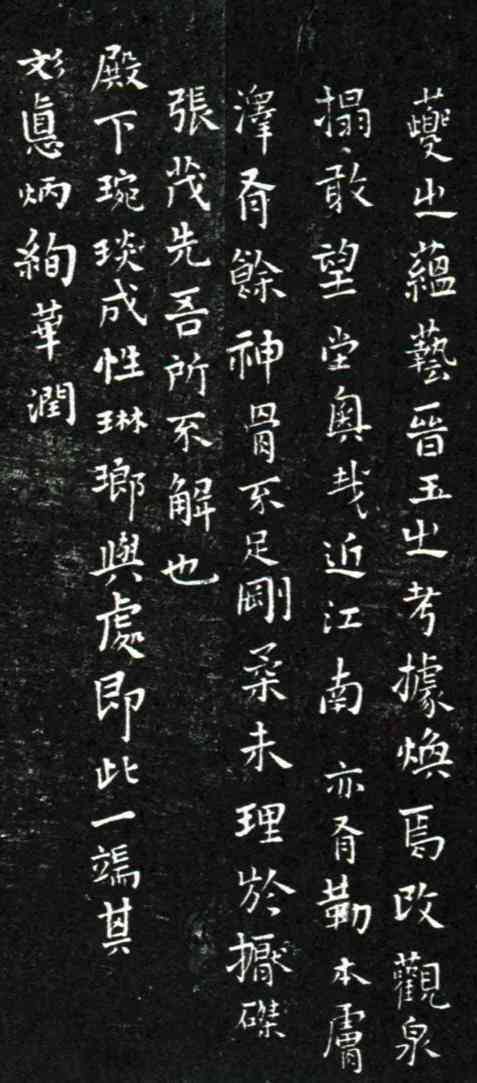 夔之蘊藝晉玉之考據煥焉改觀泉
搨敢望堂奧哉近江南亦有勒本膚
澤有餘神骨不足剛柔未理於擫磔
張茂先吾所不解也
殿下琬琰成性琳瑯與處即此一端其
炳絢華潤